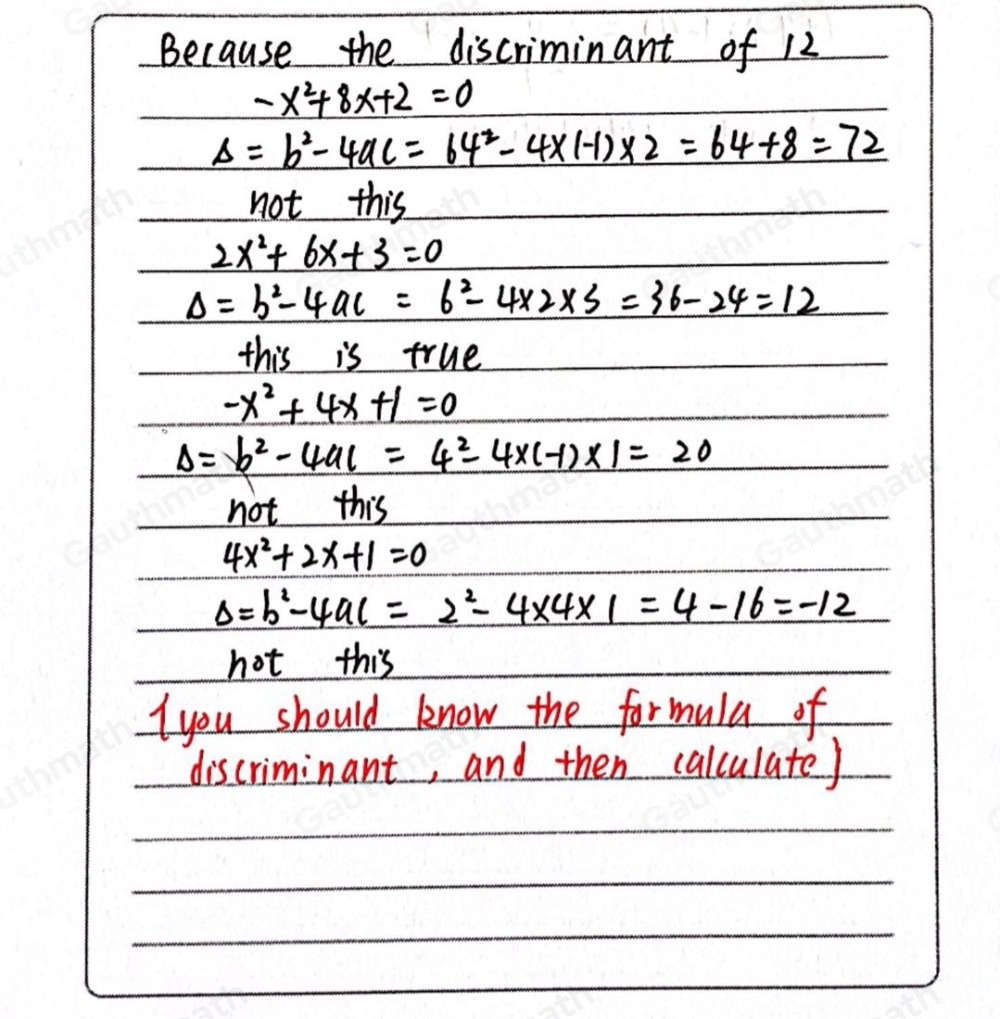 Because the discriminant of 12
-x²+8x+2=0
Δ=b²-4ac=64²-4×(-1)×2=64+8=72
not this
2x²+6x+3=0
Δ=b²-4ac=6²-4×2×3=36-24=12
this is true
-x²+4x+1=0
Δ=b²-4ac=4²-4×(-1)×1=20
not this
4x²+2x+1=0
Δ=b²-4ac=2²-4×4×1=4-16=-12
not this
{you should know the formula of
discriminant, and then calculate}
Gauthmath